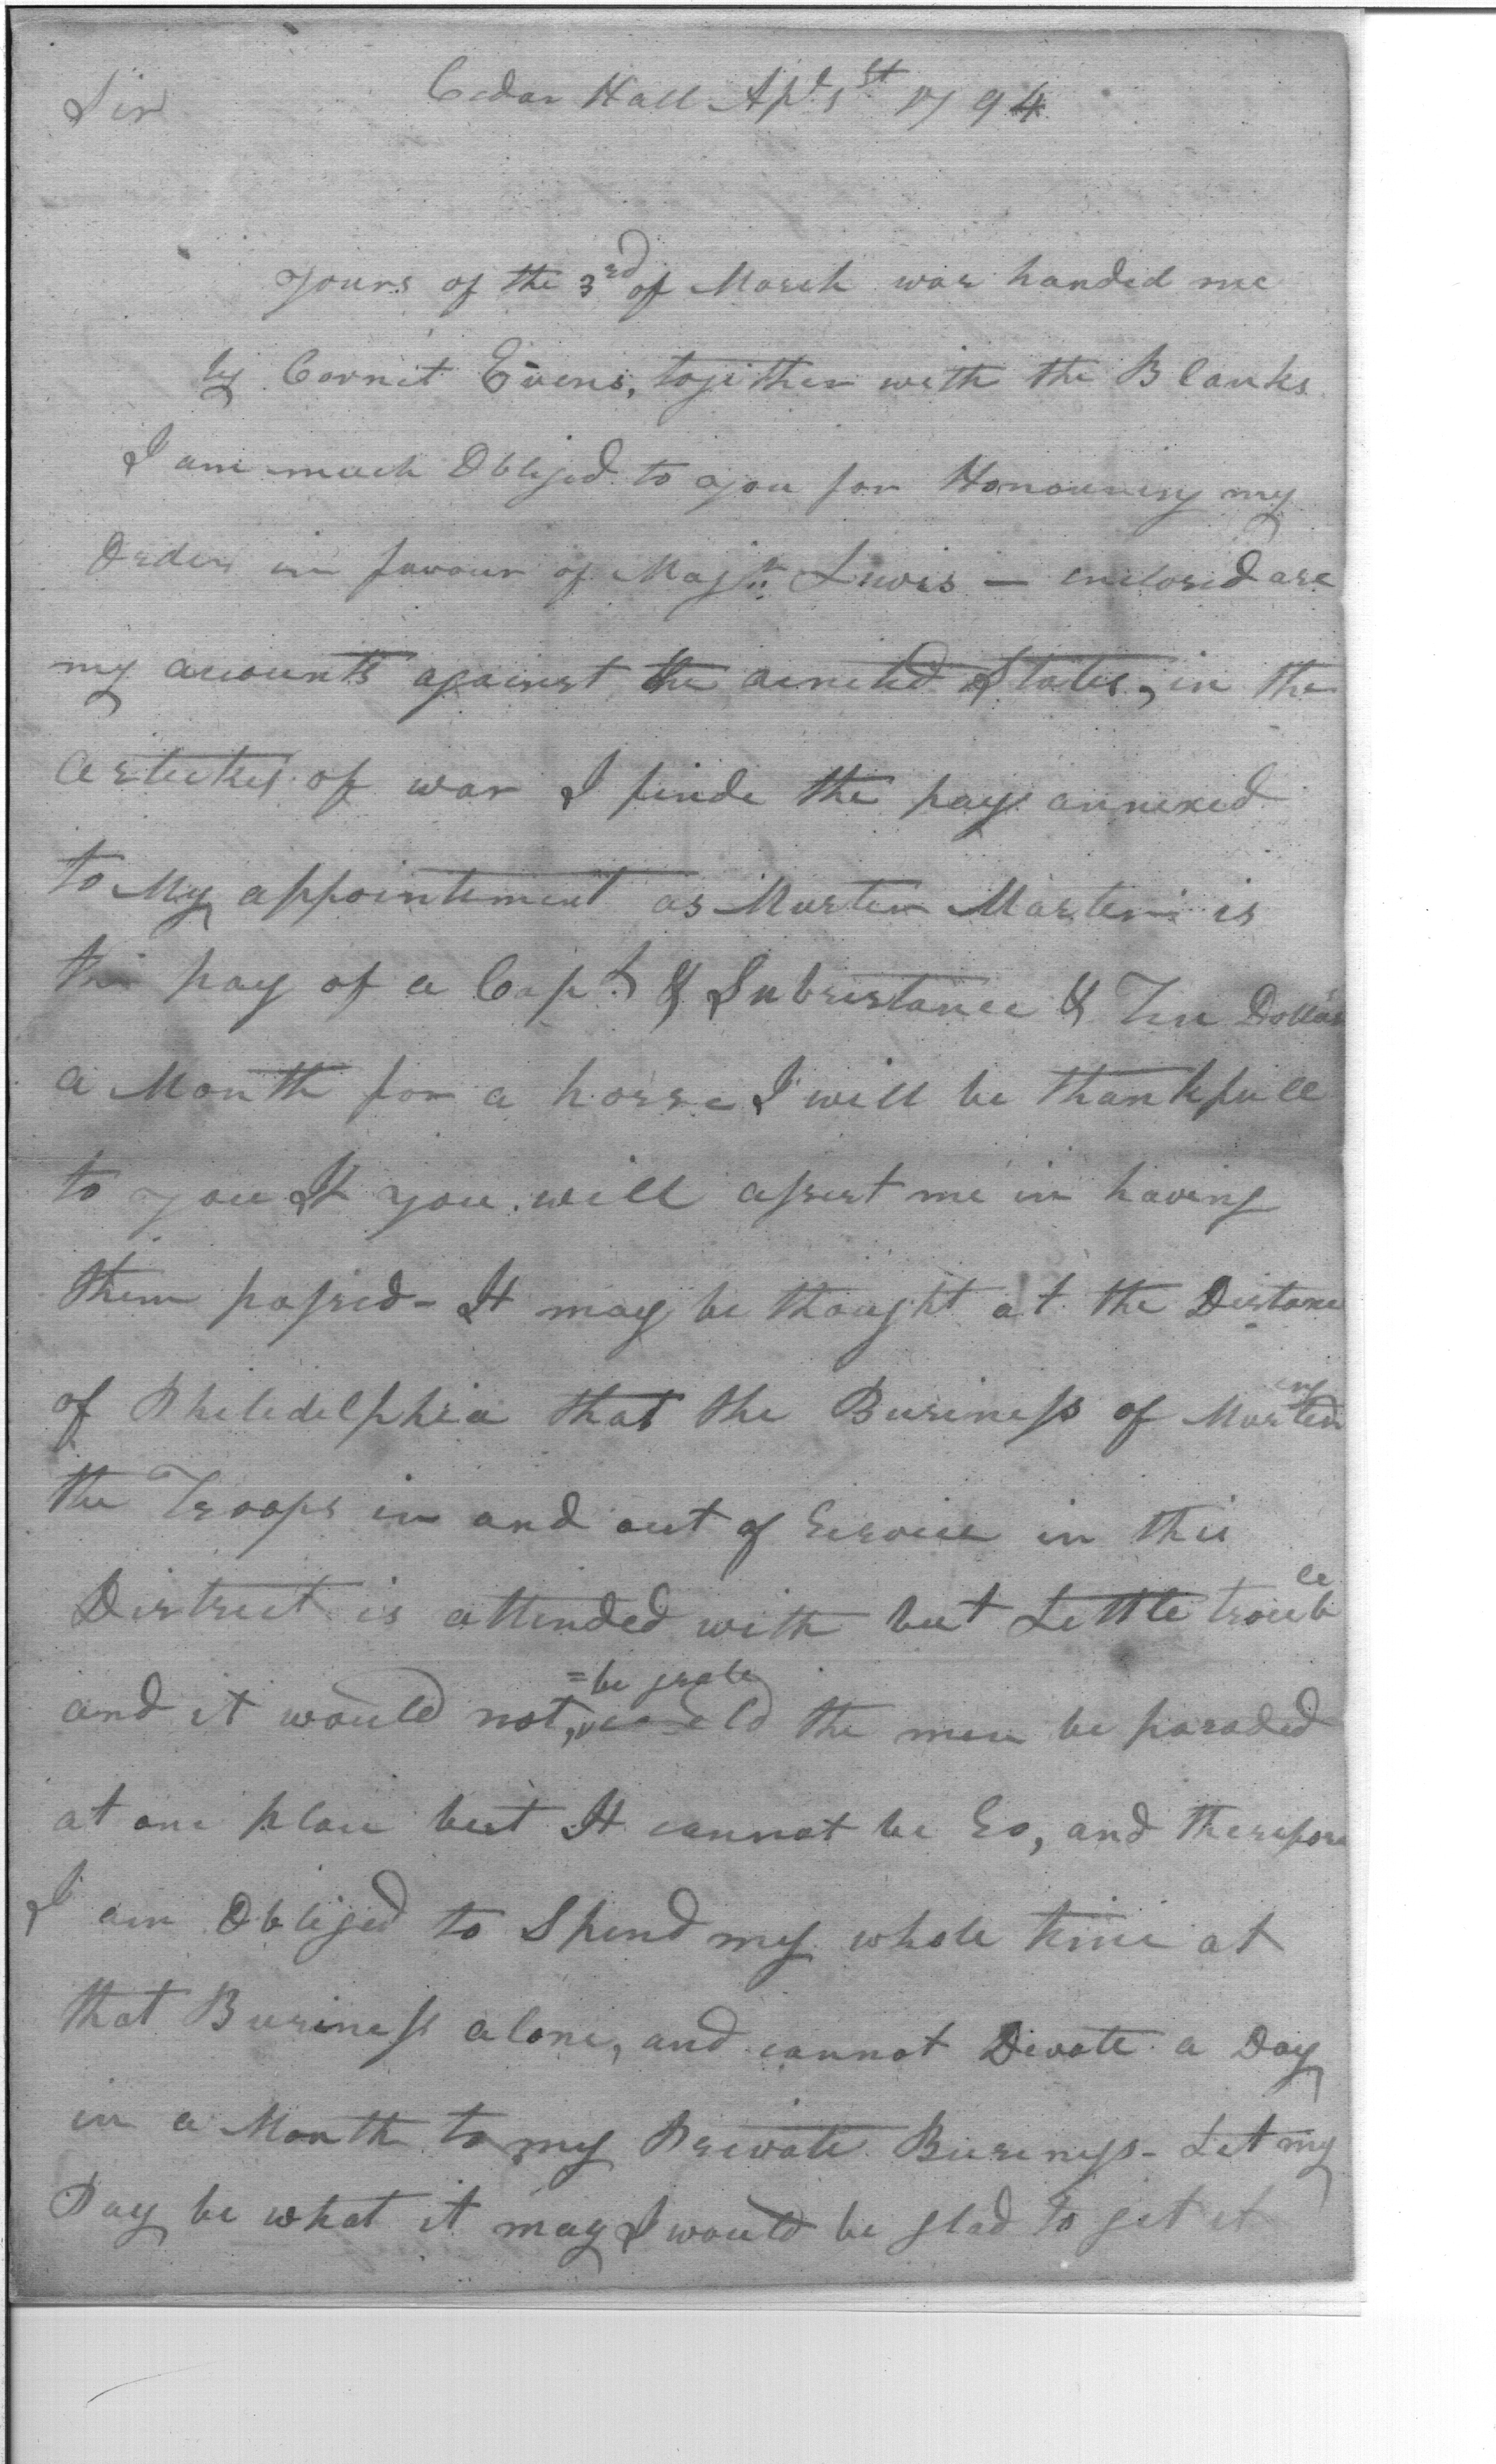 Cedar Hall Apl 1st 1794
Sir
Yours of the 3rd of March was handed me
by Cornet Evens, together with the Blanks
I am much Obliged to you for Honouring my
Order in favour of Majr. Lewis — enclosed are
my accounts against the united States, in the
Articles of war I finde the pay annexed
to My appointement as Muster Master is
the pay of a Capt. & Subsistance & Ten Dollars
a Month for a horse I will be thankfull
to you If you will assist me in having
them passed - It may be thought at the Distance
of Philedelphia that the Business of Mustering
the Troops in and out of Service in this
District is attended with but Little trouble
and it would not, could the men be paraded
at one place but It cannot be So, and therefore
I am Obliged to Spend my whole time at
that Business alone, and cannot Devote a Day
in a Month to my Private Business - Let my
Pay be what it may I would be glad to get it